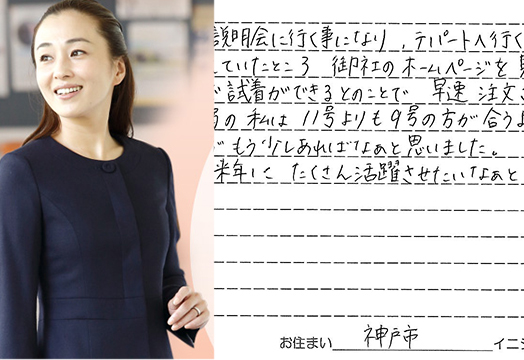 説明会に行く事になり、デパートへ行く
していたところ 御社のホームページを見
試着ができるとのことで 早速 注文さ
号の 私は 11号よりも 9号の方が合うよ
もう少しあればなぁと思いました。
来年に たくさん活躍させたいなぁと
お住まい 神戸市 イニシ